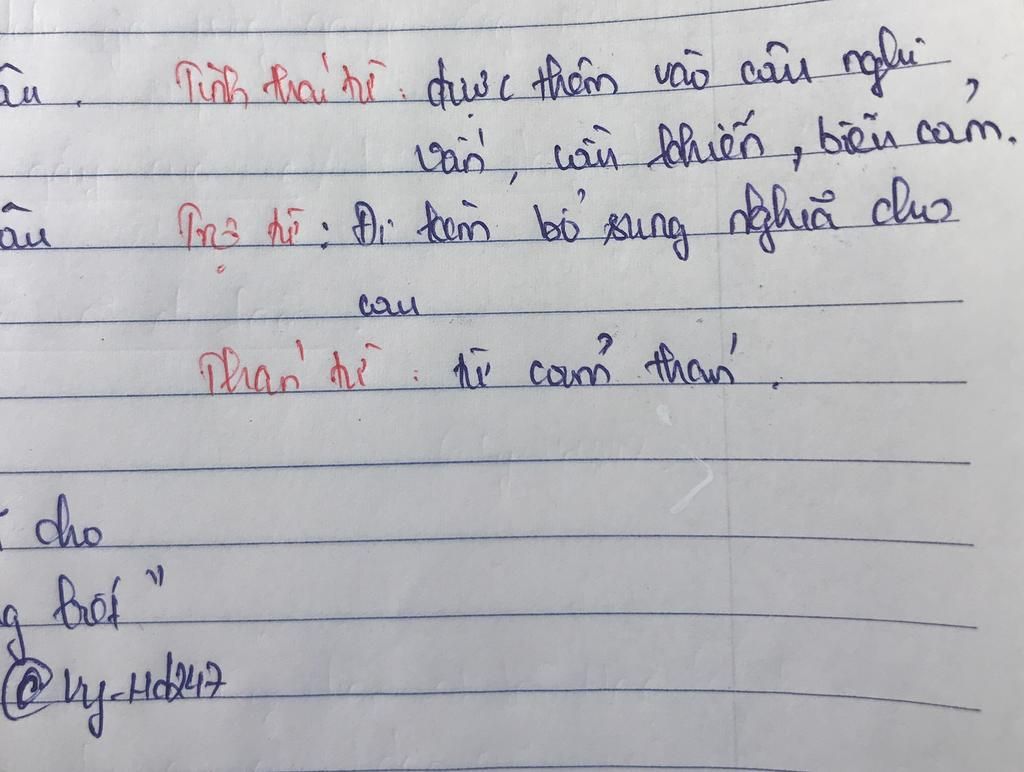 âu . Tình thái từ : được thêm vào câu nghi
vấn, cầu khiến, biểu cảm.
âu Trợ từ : Đi kèm bổ sung nghĩa cho
câu
Thán từ : từ cảm thán.
cho
g trời"
@Vy-Hd247